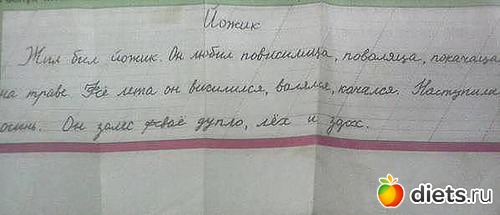 Йожик
Жил был йожик. Он любил повисилица, поваляца, покачаца
на траве. Fсё лета он висилился, валялся, качался. Наступила
осинь. Он залес fсваё дупло, лёх и здох.
diets.ru